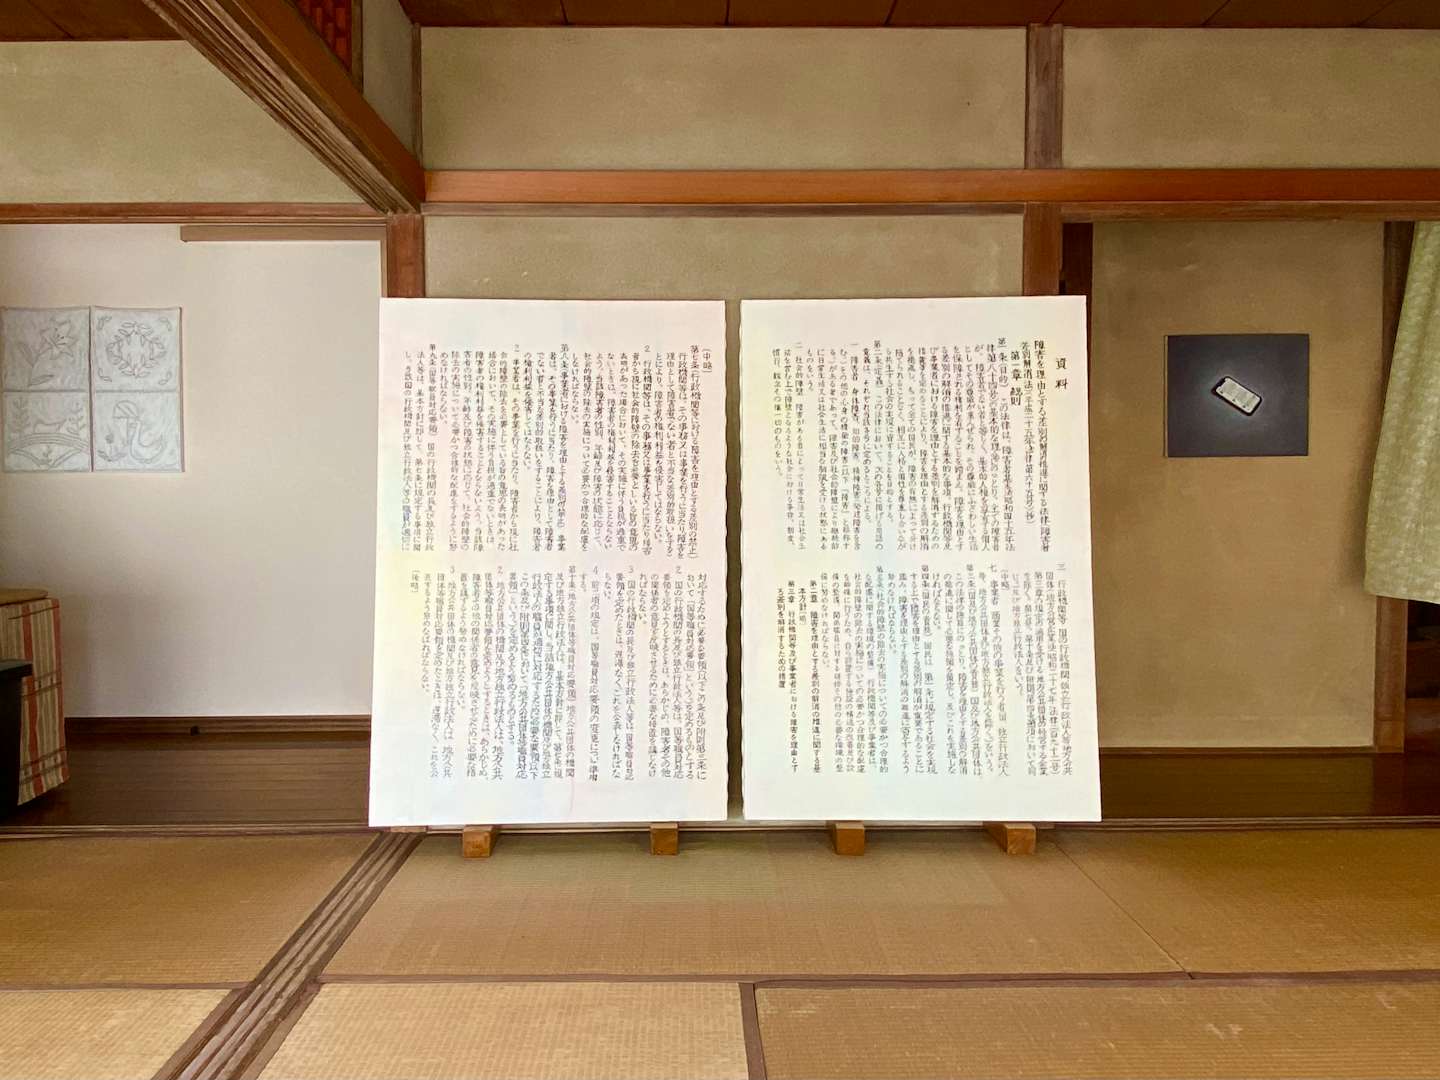 資料
障害を理由とする差別の解消の推進に関する法律(障害者
第一章 総則
第一条(目的) この法律は、障害者基本法(昭和四十五年法
を保障される権利を有することを踏まえ、障害を理由とす
る差別の解消の推進に関する基本的な事項、行政機関等及
び事業者における障害を理由とする差別を解消するための
措置等を定めることにより、障害を理由とする差別の解消
を推進し、もって全ての国民が、障害の有無によって分け
隔てられることなく、相互に人格と個性を尊重し合いなが
ら共生する社会の実現に資することを目的とする。
第二条(定義) この法律において、次の各号に掲げる用語の
意義は、それぞれ当該各号に定めるところによる。
一 障害者 身体障害、知的障害、精神障害(発達障害を含
に日常生活又は社会生活に相当な制限を受ける状態にある
ものをいう。
二 社会的障壁 障害がある者にとって日常生活又は社会生
活を営む上で障壁となるような社会における事物、制度、
慣行、観念その他一切のものをいう。
(中略)
第四条(国民の責務) 国民は、第一条に規定する社会を実現
する上で障害を理由とする差別の解消が重要であることに
鑑み、障害を理由とする差別の解消の推進に寄与するよう
努めなければならない。
社会的障壁の除去の実施についての必要かつ合理的な配慮
を的確に行うため、自ら設置する施設の構造の改善及び設
備の整備、関係職員に対する研修その他の必要な環境の整
備に努めなければならない。
第二章 障害を理由とする差別の解消の推進に関する基
本方針(略)
第三章 行政機関等及び事業者における障害を理由とす
る差別を解消するための措置
(中略)
第七条(行政機関等における障害を理由とする差別の禁止)
行政機関等は、その事務又は事業を行うに当たり、障害を
理由として障害者でない者と不当な差別的取扱いをするこ
とにより、障害者の権利利益を侵害してはならない。
2 行政機関等は、その事務又は事業を行うに当たり、障害
者から現に社会的障壁の除去を必要としている旨の意思の
表明があった場合において、その実施に伴う負担が過重で
ないときは、障害者の権利利益を侵害することとならない
よう、当該障害者の性別、年齢及び障害の状態に応じて、
社会的障壁の除去の実施について必要かつ合理的な配慮を
しなければならない。
第八条(事業者における障害を理由とする差別の禁止) 事業
者は、その事業を行うに当たり、障害を理由として障害者
でない者と不当な差別的取扱いをすることにより、障害者
の権利利益を侵害してはならない。
2 事業者は、その事業を行うに当たり、障害者から現に社
会的障壁の除去を必要としている旨の意思の表明があった
場合において、その実施に伴う負担が過重でないときは、
障害者の権利利益を侵害することとならないよう、当該障
害者の性別、年齢及び障害の状態に応じて、社会的障壁の
除去の実施について必要かつ合理的な配慮をするように努
めなければならない。
第九条(国等職員対応要領) 国の行政機関の長及び独立行政
法人等は、基本方針に即して、第七条に規定する事項に関
し、当該国の行政機関及び独立行政法人等の職員が適切に
対応するために必要な要領(以下この条及び附則第三条に
おいて「国等職員対応要領」という。)を定めるものとする。
2 国の行政機関の長及び独立行政法人等は、国等職員対応
要領を定めようとするときは、あらかじめ、障害者その他
の関係者の意見を反映させるために必要な措置を講じなけ
ればならない。
3 国の行政機関の長及び独立行政法人等は、国等職員対応
要領を定めたときは、遅滞なく、これを公表しなければな
らない。
4 前二項の規定は、国等職員対応要領の変更について準用
する。
第十条(地方公共団体等職員対応要領) 地方公共団体の機関
及び地方独立行政法人は、基本方針に即して、第七条に規
定する事項に関し、当該地方公共団体の機関及び地方独立
行政法人の職員が適切に対応するために必要な要領(以下
この条及び附則第四条において「地方公共団体等職員対応
要領」という。)を定めるよう努めるものとする。
2 地方公共団体の機関及び地方独立行政法人は、地方公共
団体等職員対応要領を定めようとするときは、あらかじめ、
障害者その他の関係者の意見を反映させるために必要な措
置を講ずるよう努めなければならない。
3 地方公共団体の機関及び地方独立行政法人は、地方公共
団体等職員対応要領を定めたときは、遅滞なく、これを公
表するよう努めなければならない。
(後略)